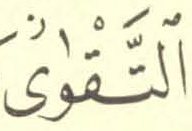 ٱلتَّقْوَىٰ